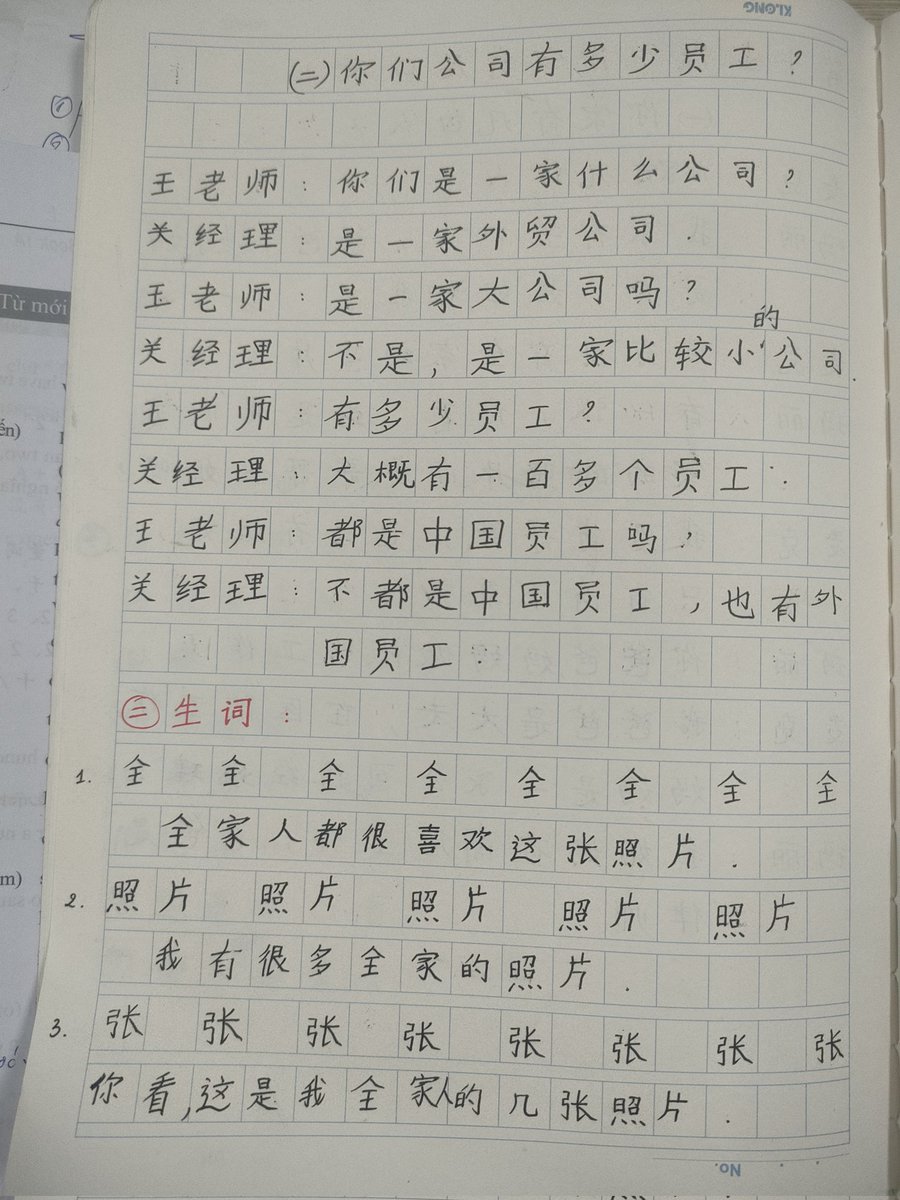 KLONG
(二)你们公司有多少员工?
王老师:你们是一家什么公司?
关经理:是一家外贸公司.
王老师:是一家大公司吗?
关经理:不是,是一家比较小的公司.
王老师:有多少员工?
关经理:大概有一百多个员工.
王老师:都是中国员工吗?
关经理:不都是中国员工,也有外
国员工.
三 生词:
1. 全 全 全 全 全 全 全 全
全家人都很喜欢这张照片.
2. 照片 照片 照片 照片 照片
我有很多全家的照片.
3. 张 张 张 张 张 张 张 张
你看,这是我全家人的几张照片.
No.
Từ mới